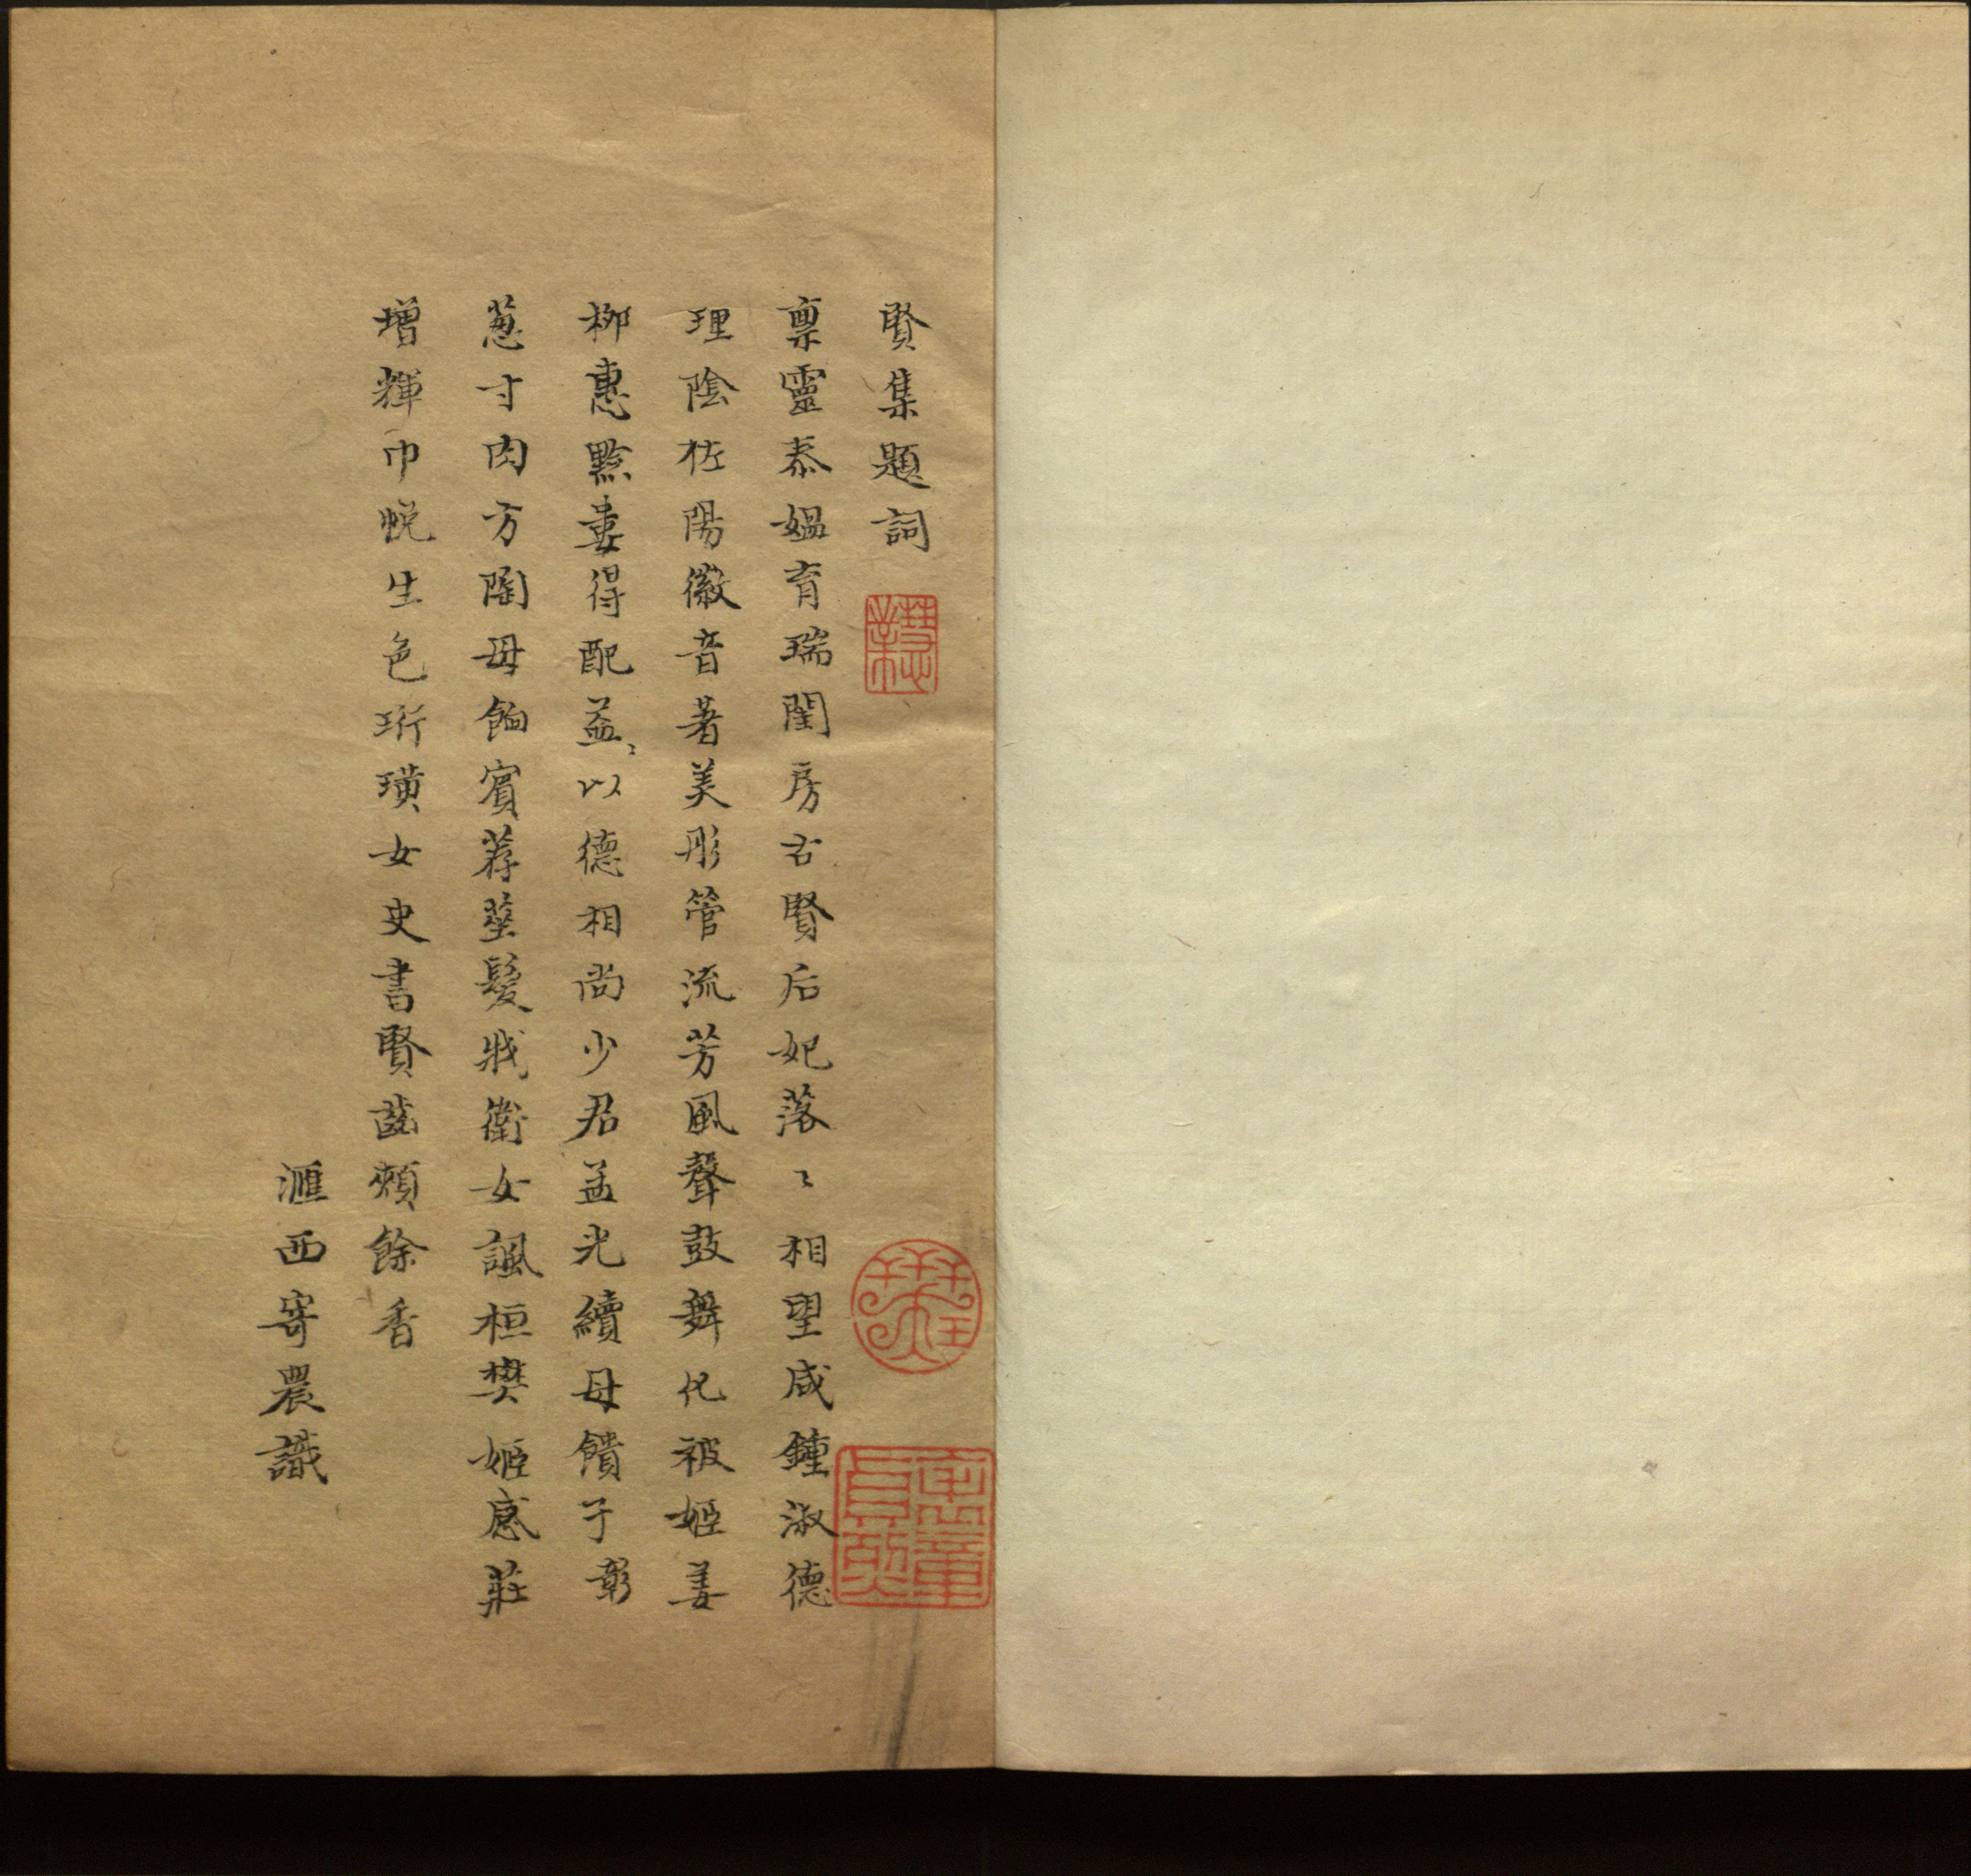 賢集題詞
禀靈泰媼育瑞閨房古賢后妃落〻相望咸鍾淑德
理陰佐陽徽音著美彤管流芳風聲鼓舞化被姬姜
柳惠黔婁得配益〻以德相尚少君孟光續母饋子彰
葱寸肉方陶母䬳賓荐莝髮戕衛女諷桓樊姬感莊
增輝巾帨生色珩璜女史書賢齒頰餘香
滙西寄農識